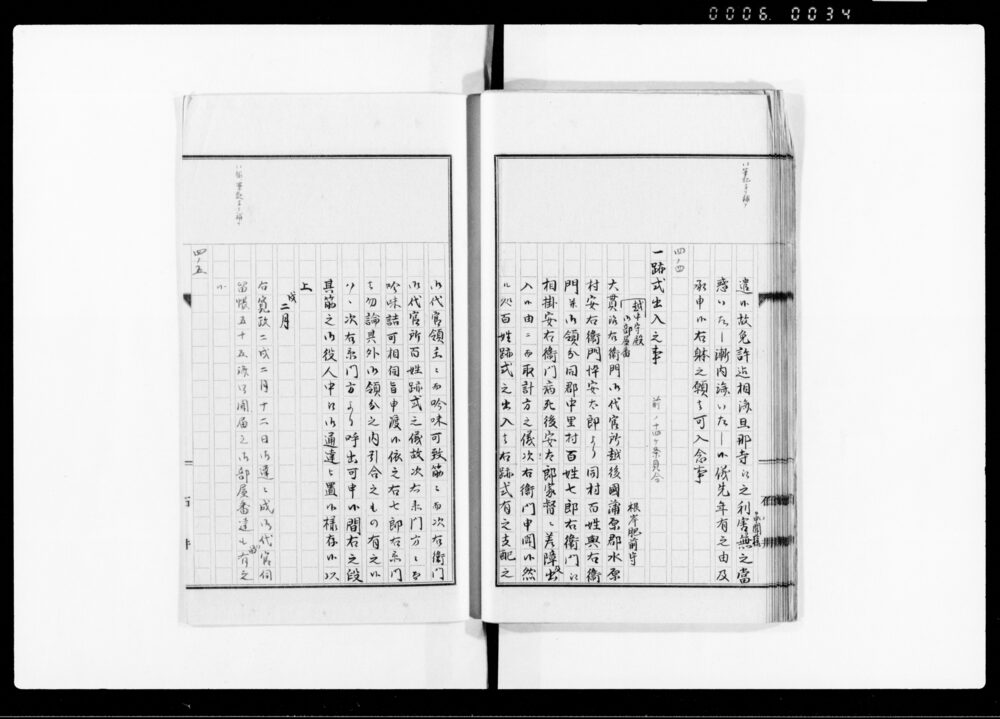 0006 0034
遣候故免許迄相済旦那寺江之利害無之当
惑いたし漸内済いたし候儀先年有之由及
承申候右躰之願は可入念事
四ノ四
一跡式出入之事
前ノ十四ヶ条見合
越中守殿
御部屋番
根岸肥前守
大貫次右衛門御代官所越後國蒲原郡水原
村安右衛門悴安太郎より同村百姓與右衛
門并御領分同郡中里村百姓七郎右衛門江
相掛安右衛門病死後安太郎家督ニ差障出
入候由ニ而取計方之儀次右衛門申聞候然
ル処百姓跡式之出入は右跡式有之支配之
御代官領主ニ而吟味可致筋ニ而次右衛門
御代官所百姓跡式之儀故次右衛門方ニ而
吟味詰可相伺旨申渡候依之右七郎右衛門
は勿論其外御領分之内引合之もの有之候
ハヽ次右衛門方より呼出可申候間右之段
其筋之御役人中江御通達ニ置候様存候以
上
戌二月
右寛政二戌二月十二日御達ニ成御代官伺
留帳五十五張江聞届之御部屋番達も有之
候
四ノ五